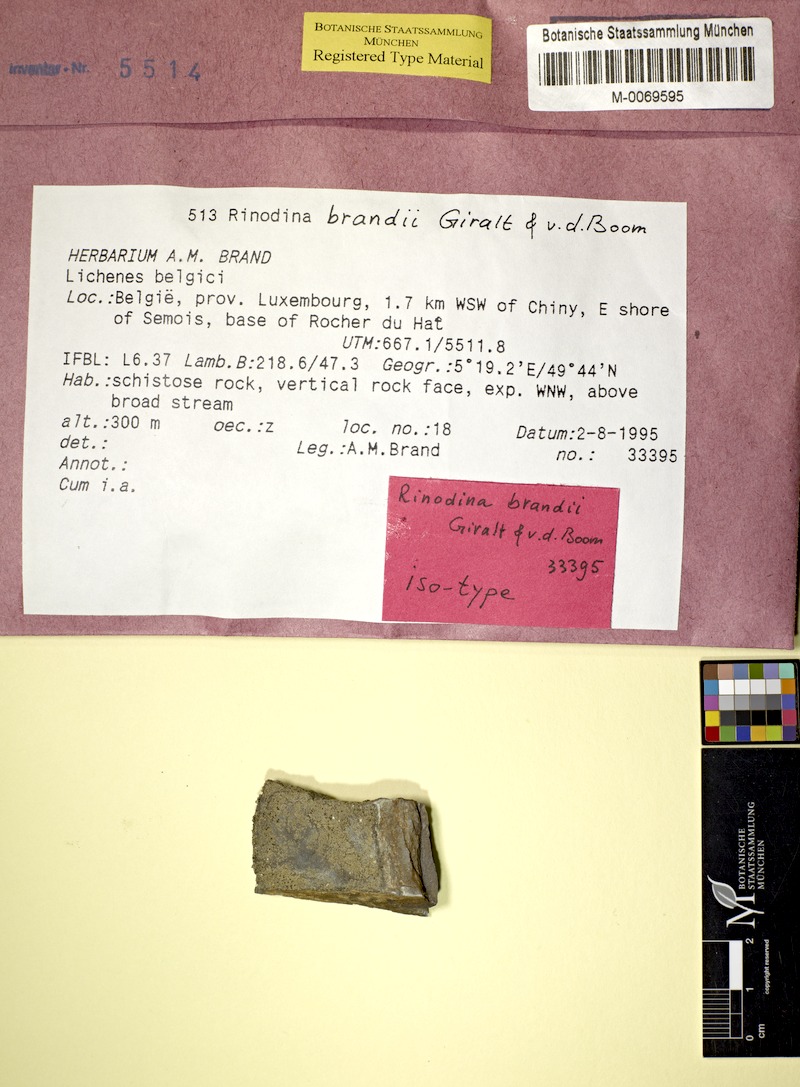 Inventar-Nr. 5514
BOTANISCHE STAATSSAMMLUNG
MÜNCHEN
Registered Type Material
Botanische Staatssammlung München
M-0069595
513 Rinodina brandii Giralt & v.d.Boom
HERBARIUM A.M. BRAND
Lichenes belgici
Loc.:België, prov. Luxembourg, 1.7 km WSW of Chiny, E shore
of Semois, base of Rocher du Hat
UTM:667.1/5511.8
IFBL: L6.37 Lamb.B:218.6/47.3 Geogr.:5°19.2'E/49°44'N
Hab.:schistose rock, vertical rock face, exp. WNW, above
broad stream
alt.:300 m oec.:z loc. no.:18 Datum:2-8-1995
det.: Leg.:A.M.Brand no.: 33395
Annot.:
Cum i.a.
Rinodina brandii
Giralt & v.d.Boom
33395
iso-type
BOTANISCHE
STAATSSAMMLUNG
MÜNCHEN
0 1 2
cm
copyright reserved